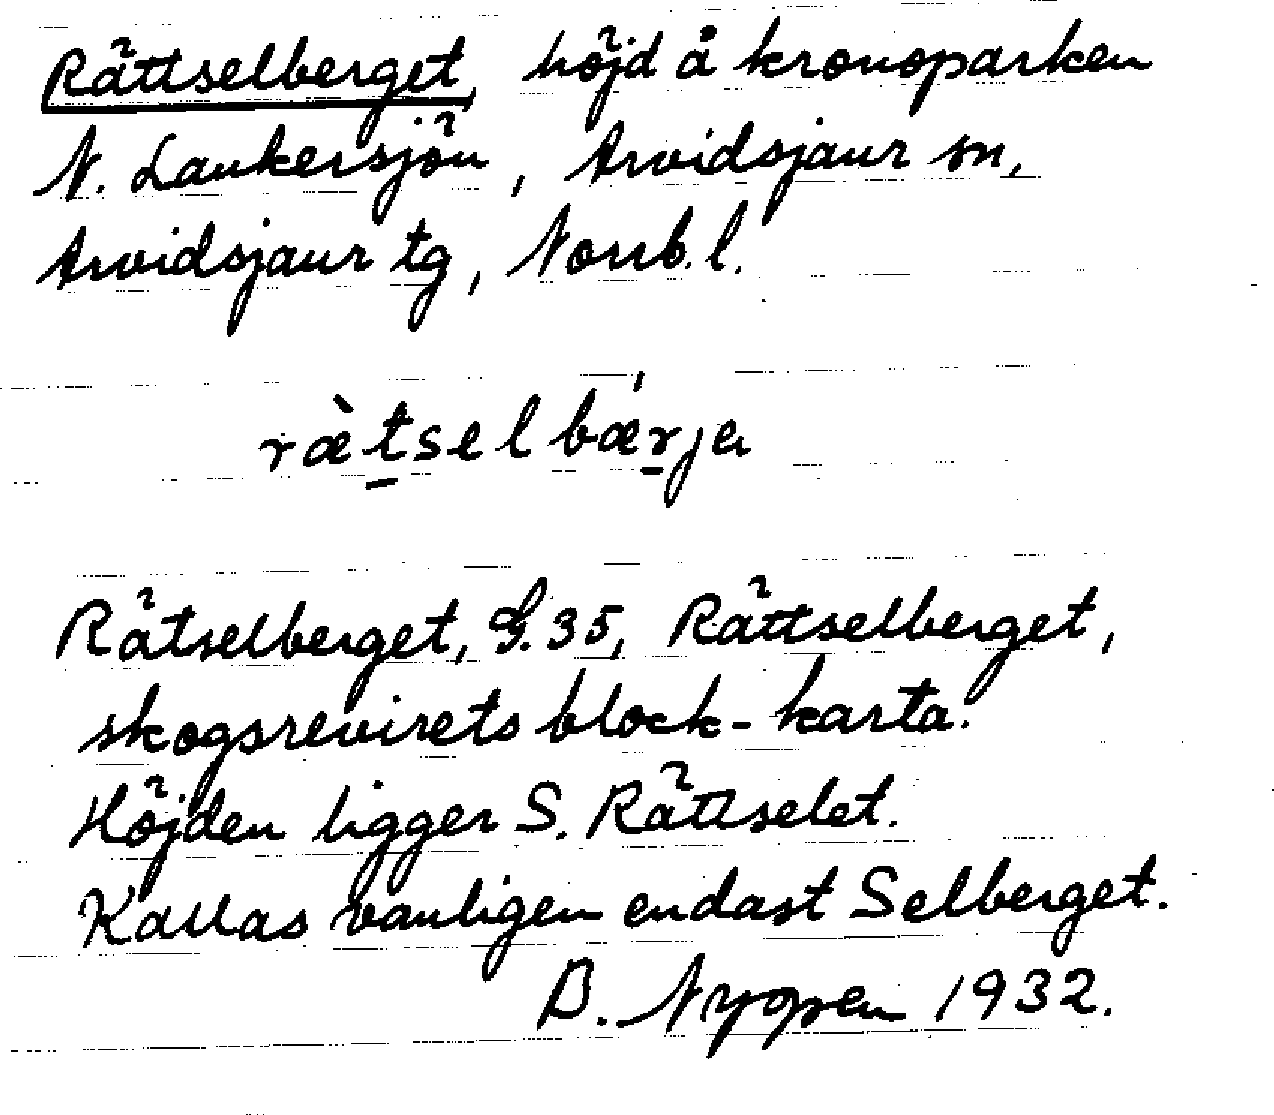 Rättselberget, höjd å kronoparken
N. Laukersjön, Arvidsjaur sn,
Arvidsjaur tg, Norrb. l.
ræ̀tselbǽrjə
Rätselberget, G. 35, Rättselberget,
skogsrevirets block-karta.
Höjden ligger S. Rättselet.
Kallas vanligen endast Selberget.
B. Nygren 1932.